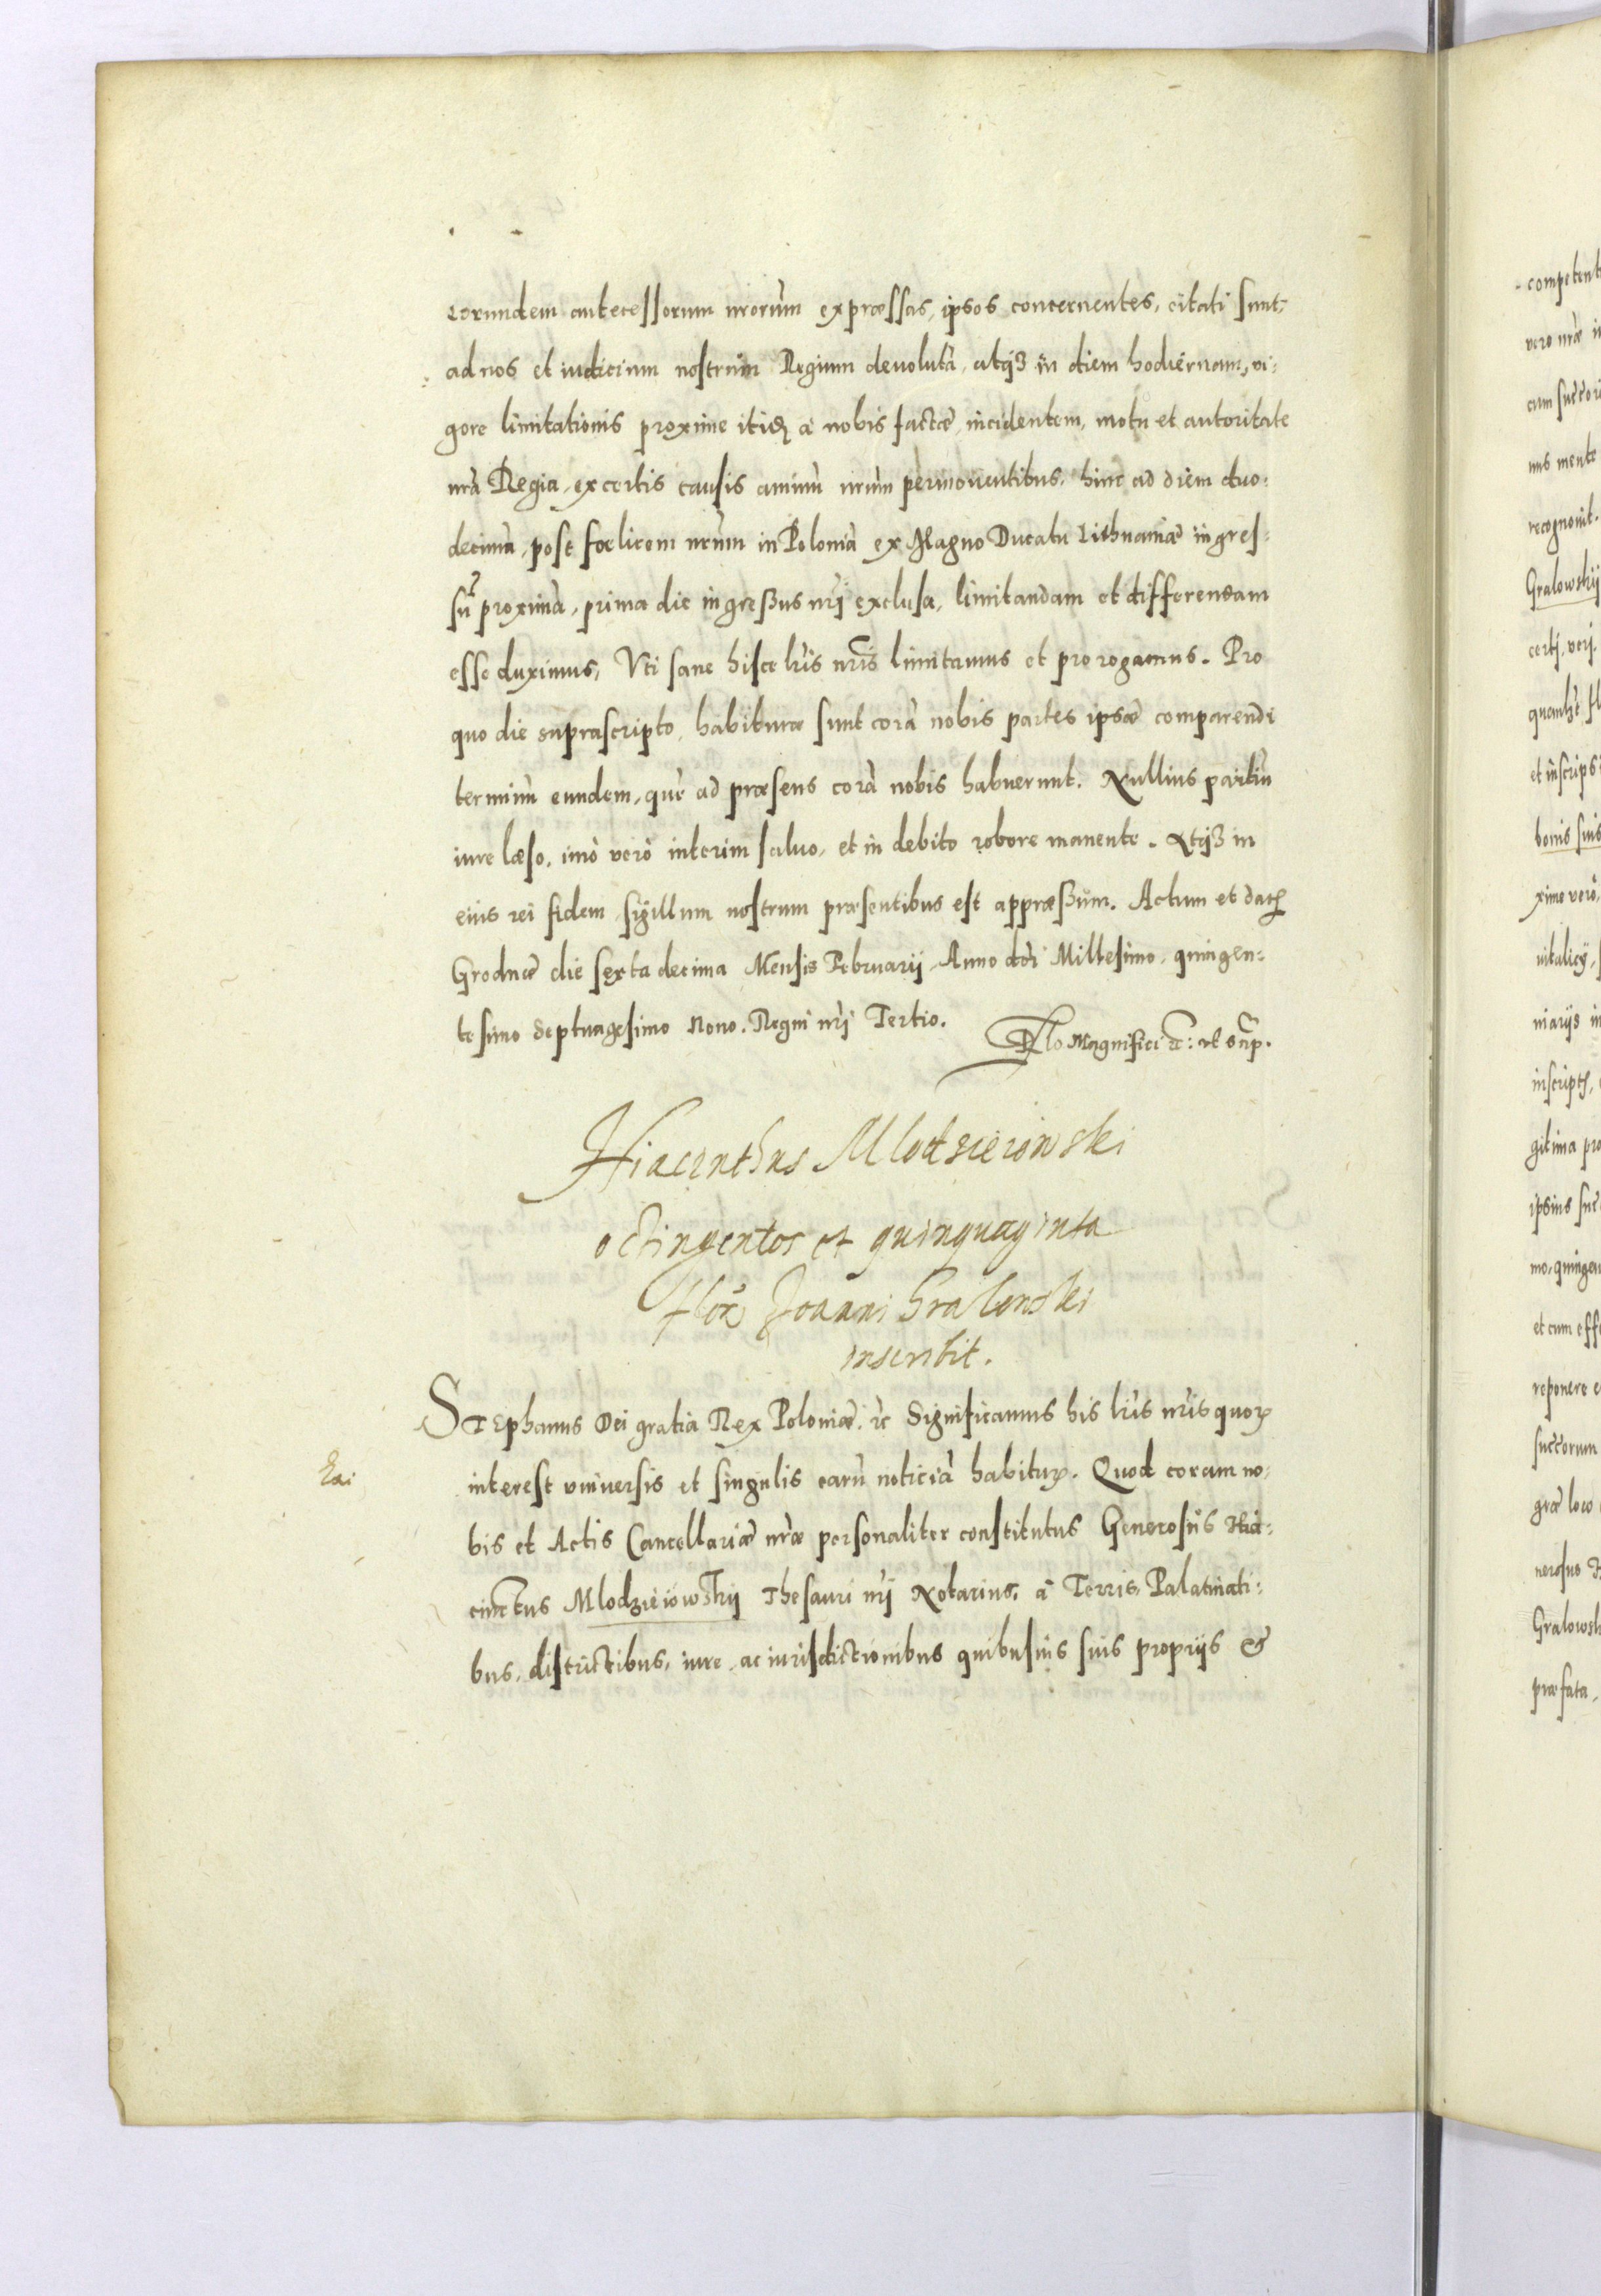 eorundem antecessorum nrorum expræssas, ipsos concernentes, citati sunt,
ad nos et iudicium nostrum Regium deuoluta, atqʒ in diem hodiernam, vi:
gore limitationis proxime itidē a nobis factæ, incidentem, motu et autoritate
nrā Regia, ex certis causis animū nrum permouentibus, hinc ad diem duo:
decimā, post fœlicem nrum in Poloniā ex Magno Ducatu Lithuaniæ ingres:
sū proximā, prima die ingreßus nrj exclusa, limitandam et differendam
esse duximus, Vti sane hisce lris nris limitamus et prorogamus. Pro
quo die suprascripto, habituræ sunt corā nobis partes ipsæ comparendi
terminū eundem, quē ad præsens corā nobis habuerunt. Nullius partiū
iure læso, imò verò interim saluo, et in debito robore manente. Atqʒ in
eius rei fidem, sigillum nostrum præsentibus est appræßum. Actum et datꝭ
Grodnæ die sexta decima Mensis Februarij Anno dni Millesimo, quingen:
tesimo Septuagesimo Nono. Regni nrj Tertio.
Rlo Magnifici &c: vt sup.
Hiacynthus Mlodzieiowski
octingentos et quinquaginta
flor Joanni Gralewski
inscribit.
Stephanus Dei gratia Rex Poloniæ. &c Significamus his lris nris quoꝝ
interest vniuersis et singulis earū noticiā habituꝝ. Quod coram no:
bis et Actis Cancellariæ nræ personaliter constitutus Generosus Hia:
cinctus Mlodzieiowskij Thesauri nrj Notarius, à Terris, Palatinati:
bus, districtibus, iure, ac iurisdictionibus quibusuis suis proprijs &
competent
vero nræ in
mente
recognouit.
Gralowskij
certj, verj,
et inscrips
bonis suis
ximo verò,
vitalicij,
niarijs in
inscriptꝭ,
gitima pro
ipsius suc
mo, quingen
et cum effe
reponere
succorum
græ loco
nerosus H
Gralowsk
præfata,